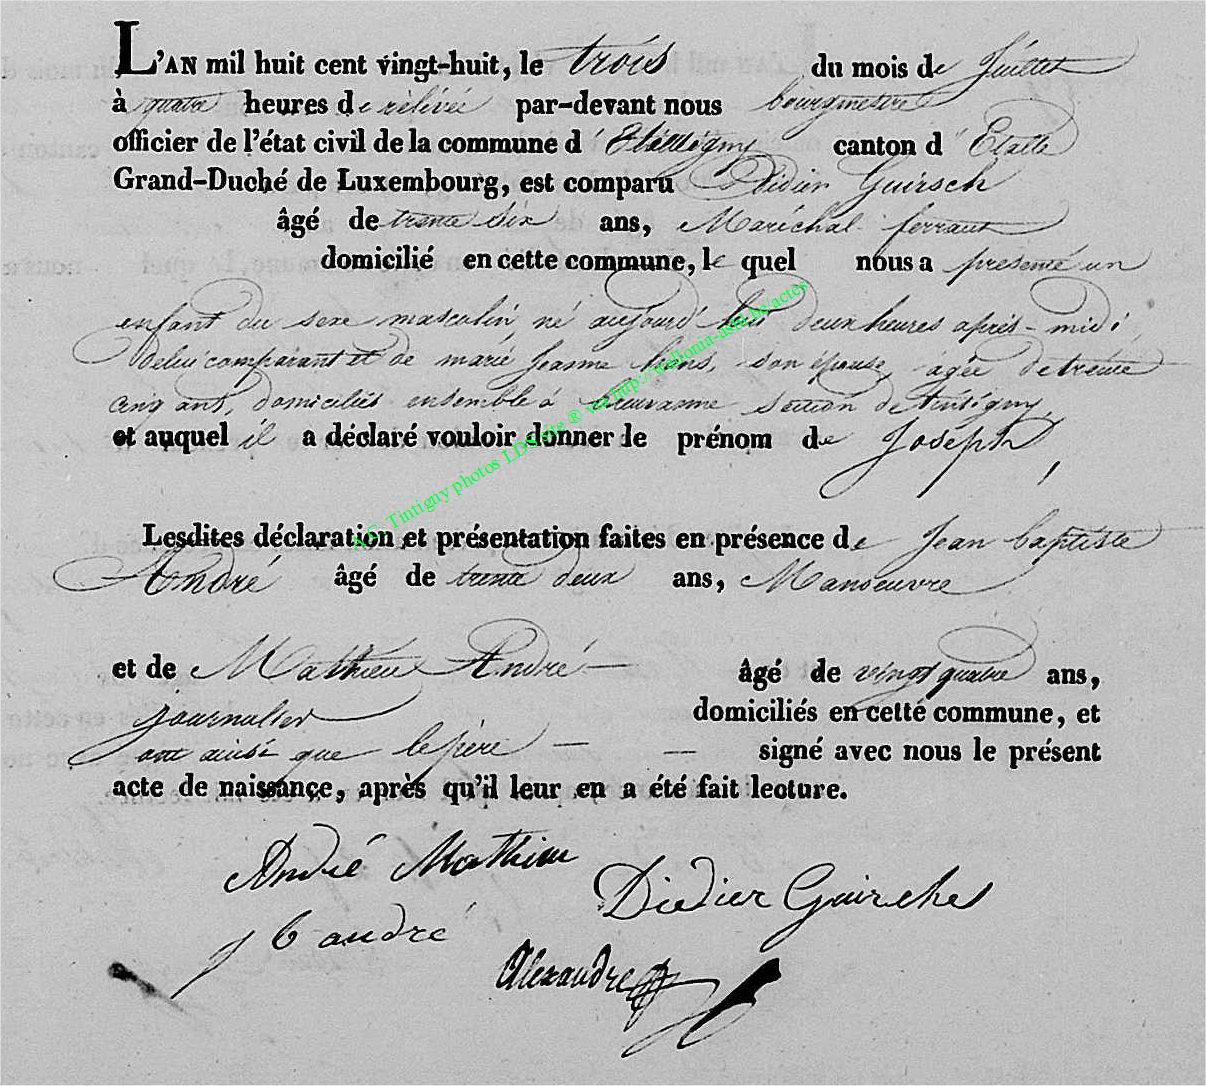 L'AN mil huit cent vingt-huit, le trois du mois de Juillet
à quatre heures de rélévée par-devant nous bourgmestre
officier de l'état civil de la commune d' canton d' Etalle
Grand-Duché de Luxembourg, est comparu Didier Guirsch
âgé de trente six ans, Maréchal ferrant
domicilié en cette commune, le quel nous a présenté un
enfant du sexe masculin né aujourd'hui deux heures après-midi
de lui comparant et de marie Jeanne son épouse, agée de trente
cinq ans, domiciliés ensemble à section de
et auquel il a déclaré vouloir donner le prénom de Joseph,
Lesdites déclaration et présentation faites en présence de Jean baptiste
André âgé de trente deux ans, Manoeuvre
et de Mathieu André âgé de vingt quatre ans,
journalier domiciliés en cette commune, et
ont ainsi que le père — — signé avec nous le présent
acte de naissance, après qu'il leur en a été fait lecture.
André Mathieu
Didier Guirches
J b andré
Alexandre
A.G. Tintigny photos LDS site ® via http://wallonia-asbl.be/actes